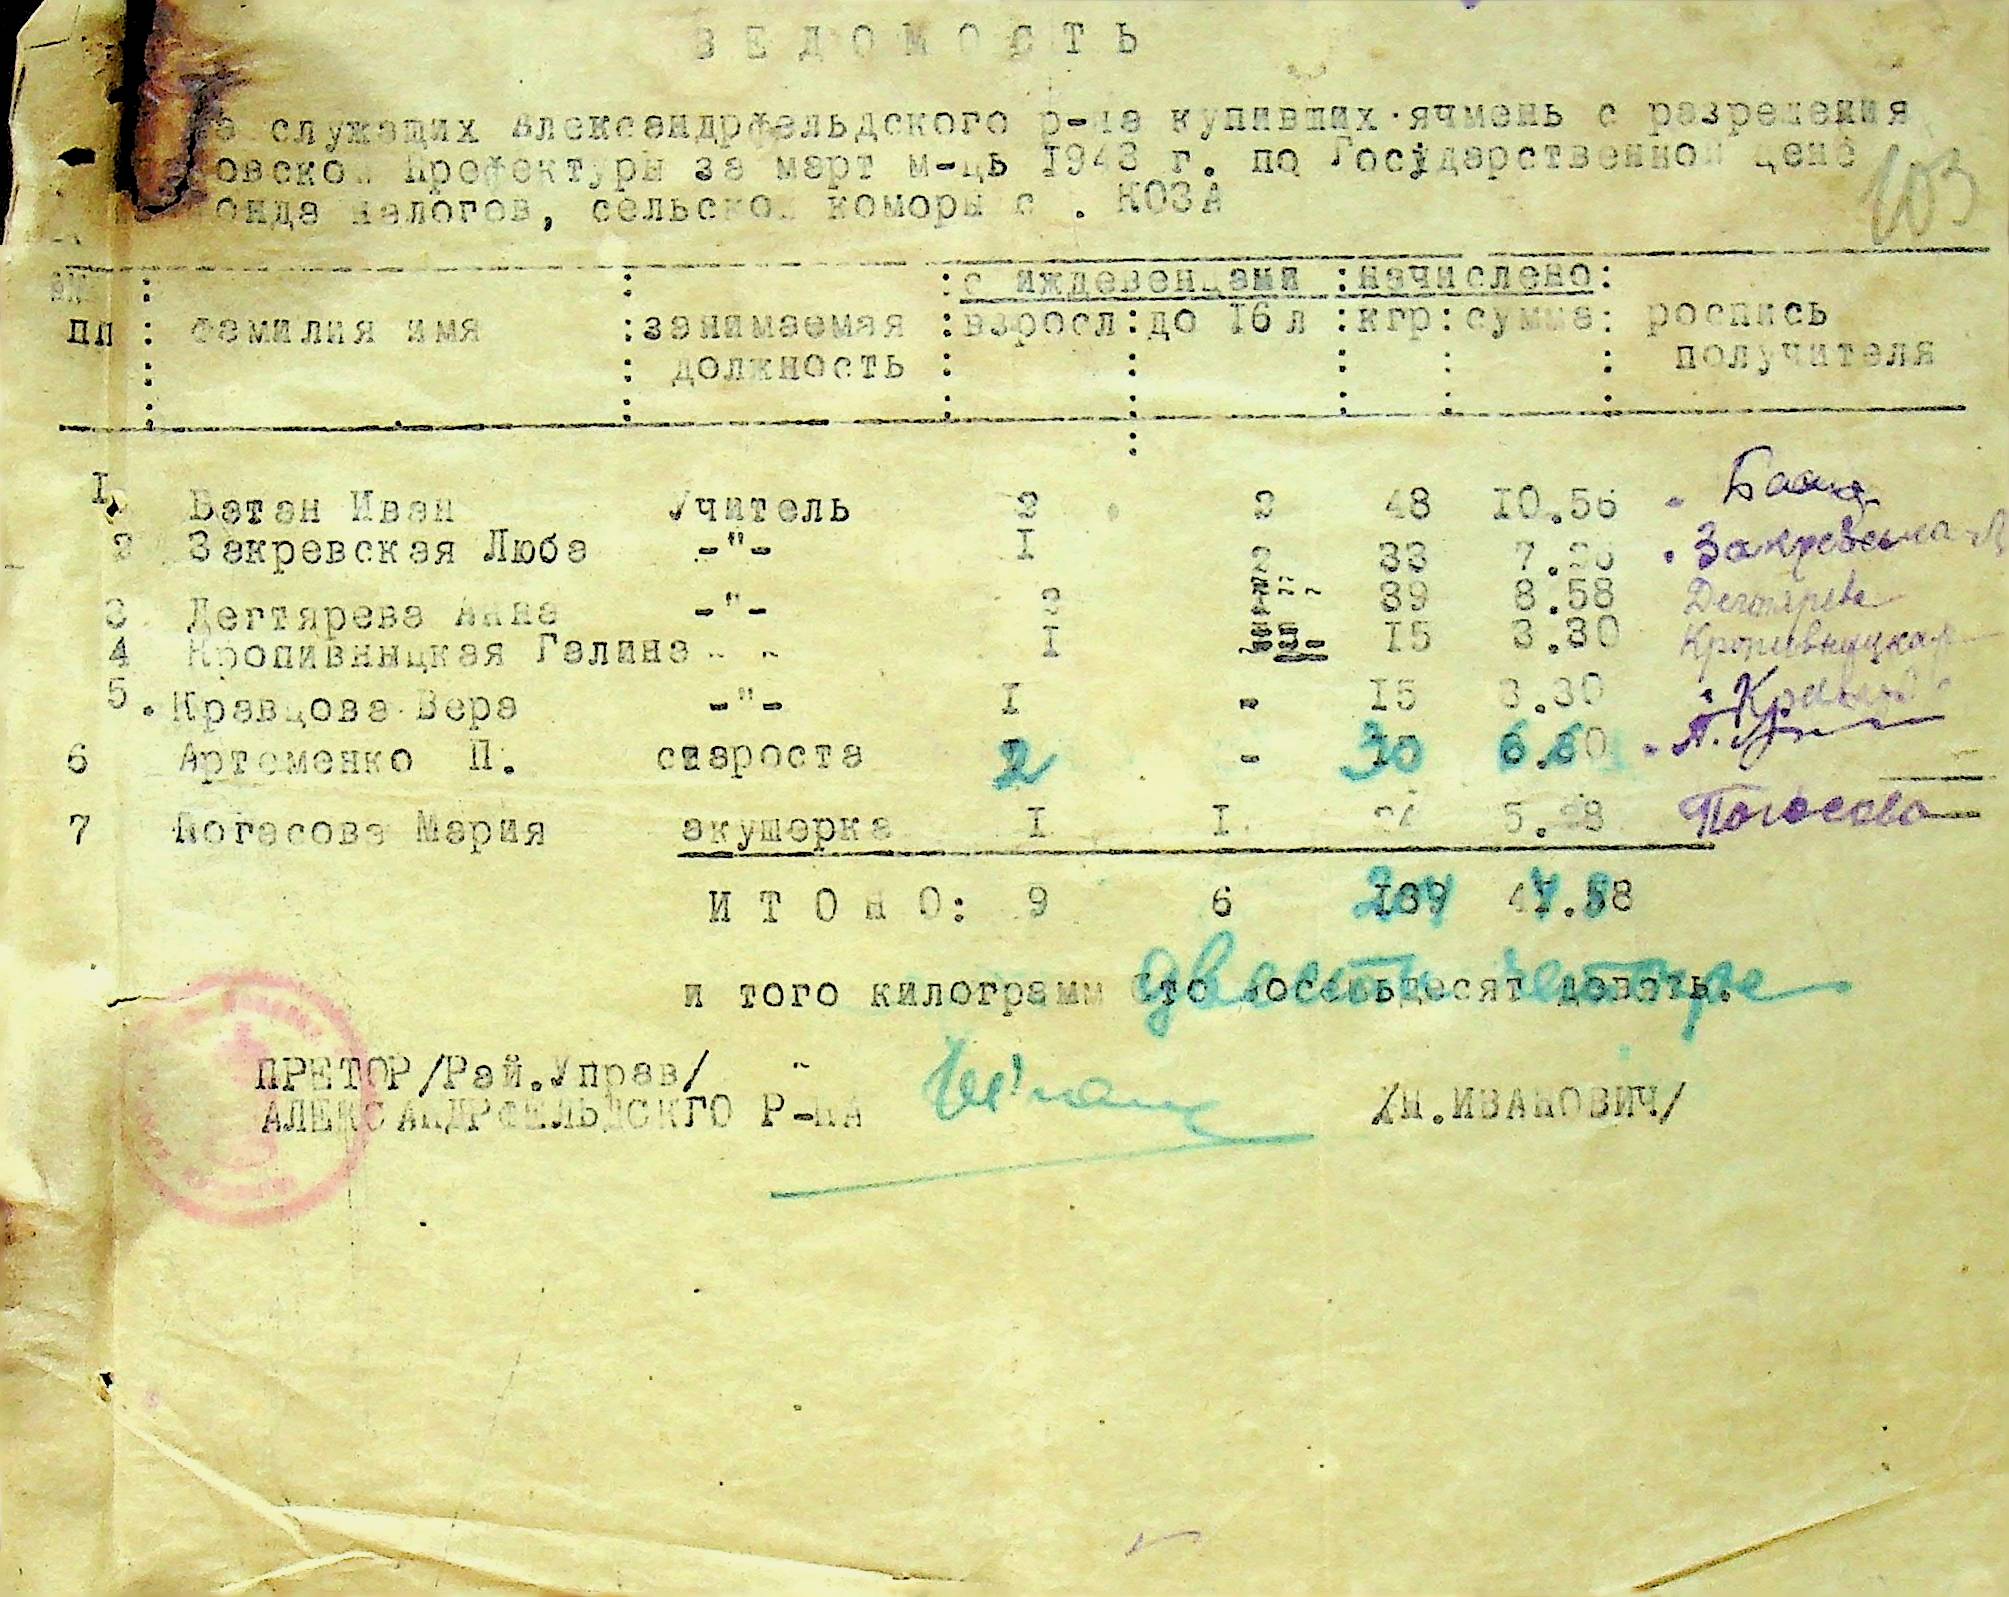 ВЕДОМОСТЬ
служащих Александрфельдского р-на купивших ячмень с разрешения
Префектуры за март м-ць 1943 г. по Государственной цене
налогов, сельской коморы с. КОЗА
103
с иждевенцами : начислено:
пп : фамилия имя : занимаемая : взросл: до 16 л : кгр: сумма: роспись
должность получителя
I Батан Иван Учитель 2 2 48 10.56
2 Закревская Люба -"- I 2 33 7.26 Закревська Л
3 Дегтярева Анна -"- 39 8.58 Дегтярева
4 Кропивныцкая Галина " " I 15 3.30 Кропивныцкая
5. Кравцова Вера -"- I - 15 3.30
6 Артеменко П. староста 2 - 30 6.60
7 Погасова Мария акушерка I I 24 5.28 Погасова
ИТОНО: 9 6 204
и того килограмм сто восемьдесят девять. двести четыре
ПРЕТОР/Рай.Управ/
АЛЕКСАНДРФЕЛЬДСКГО Р-НА
ИН.ИВАНОВИЧ/